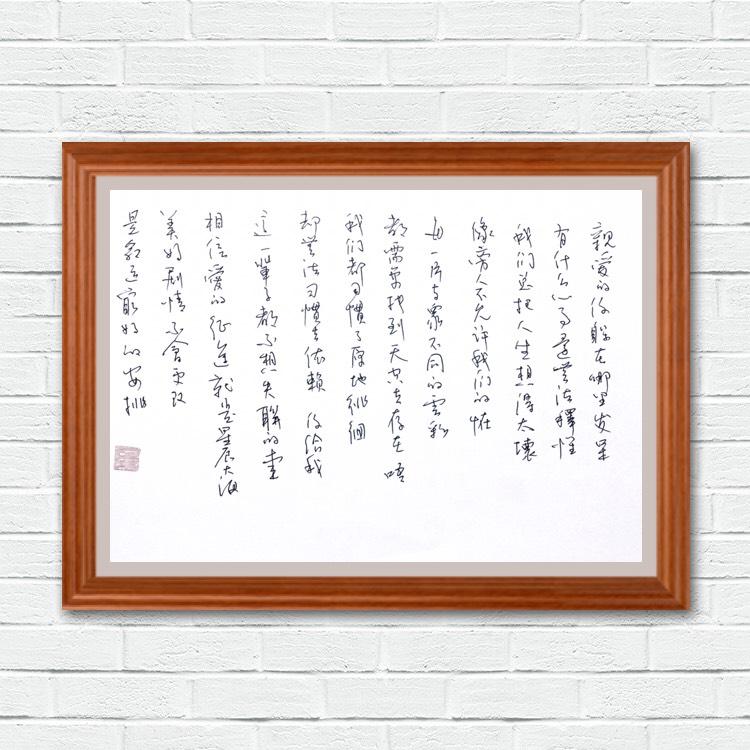 親愛的你躲在哪里发呆
有什么心事還無法釋怀
我们总把人生想得太壞
像旁人不允许我们的怪
每一片与眾不同的雲彩
都需要找到天空去存在 唔
我们都习慣了原地徘徊
却無法习慣去依賴 你给我
這一輩子都不想失聯的爱
相信愛的征途就是星辰大海
美好剧情不會更改
是命运最好的安排